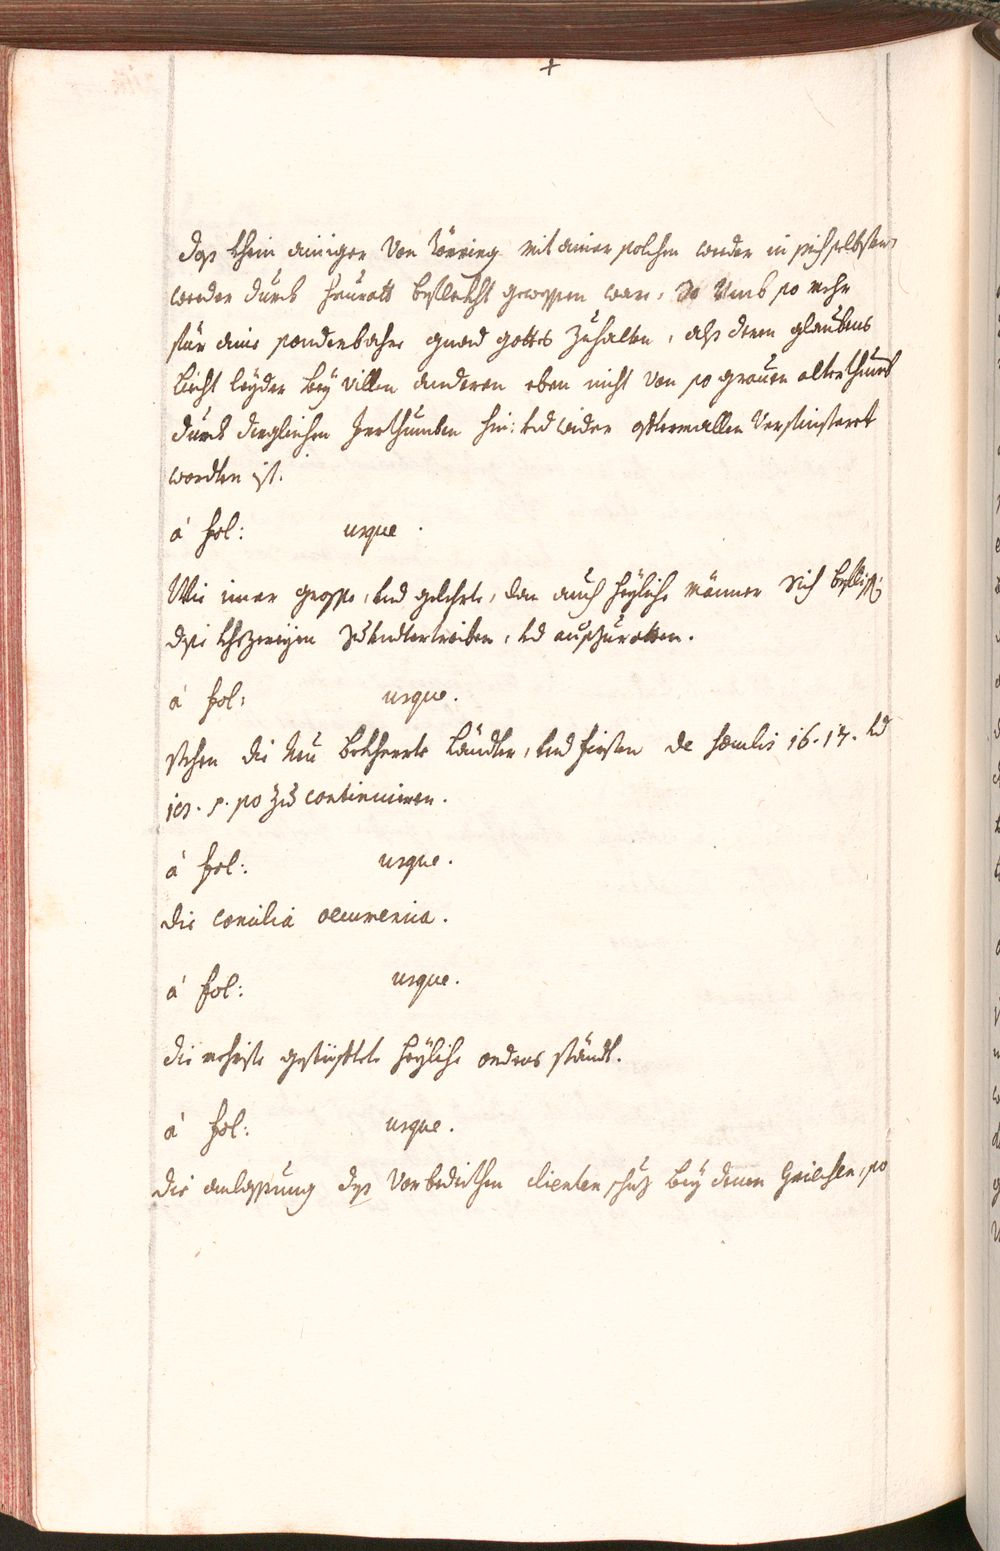 +
daß khein ainiger Von Törring mit ainer solchen weder in sich selbsten,
weder durch heuratt beflekht gewessen ware, So Umb so mehr
für aine sonderbahre gnad gottes zuhalten, alß deren glaubens
liecht leyder bey villen anderen eben nicht von so grauen alterthumb
durch dergleichen Irrthumben hin: und wider offtermallen Verfinstert
wordten ist.
à fol: usque.
Wie imer grosse, und gelehrte, dan auch heyliche männer Sich beflissen
dise khezereyen zu undtertreiben, und auszurotten.
à fol: usque.
stehen die Neu bekherrte Ländter, und fürsten de sæculis 16. 17. und
so zu continuiren.
à fol: usque.
die concilia oecumenica.
à fol: usque.
die mehiste gestüfftete heyliche ordens ständt.
à fol: usque.
die anlassung des Vorbedeithen clienten schuz bey denen Griechen, so